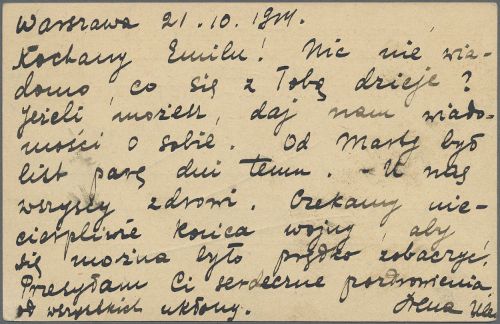 Warszawa 21.10.1914.
Kochany Emilu! Nic nie wia-
domo, co się z Tobą dzieje?
Jeżeli możesz, daj nam wiado-
mości o sobie. Od Marty był
list parę dni temu. - U nas
wszyscy zdrowi. Czekamy nie-
cierpliwie końca wojny, aby
się można było prędko zobaczyć.
Przesyłam Ci serdeczne pozdrowienia,
od wszystkich ukłony. Irena